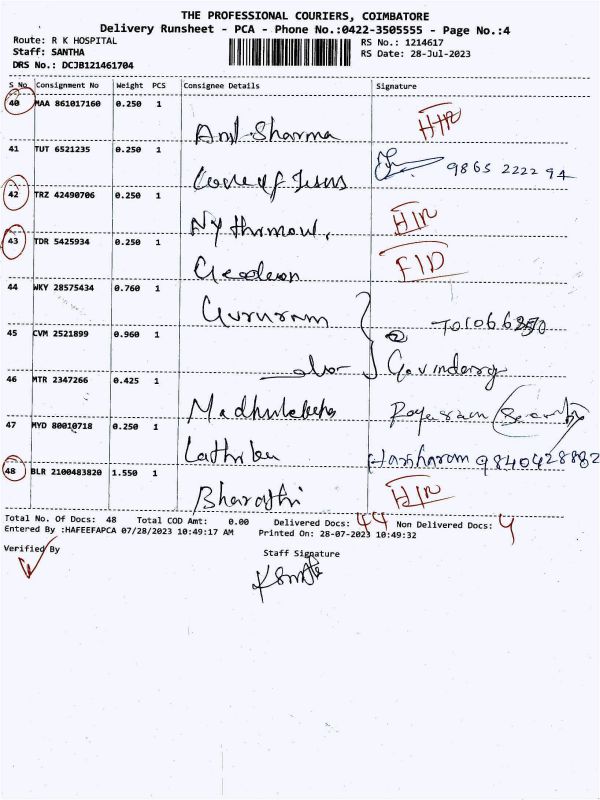 THE PROFESSIONAL COURIERS, COIMBATORE
Delivery Runsheet - PCA - Phone No.:0422-3505555 - Page No.:4
Route: R K HOSPITAL
Staff: SANTHA
DRS No.: DCJB121461704
RS No.: 1214617
RS Date: 28-Jul-2023
S No Consignment No Weight PCS Consignee Details Signature
40 MAA 861017160 0.250 1
Anil Sharma
41 TUT 6521235 0.250 1
9865 2222 94
Care of Jesus
42 TRZ 42490706 0.250 1
43 TDR 5425934 0.250 1
44 WKY 28575434 0.760 1
Gururam
45 CVM 2521899 0.960 1
Govindaraj
46 MTR 2347266 0.425 1
47 MYD 80010718 0.250 1
Harsharam 9840428882
48 BLR 2100483820 1.550 1
Bharathi
Total No. Of Docs: 48 Total COD Amt: 0.00 Delivered Docs: 44 Non Delivered Docs: 4
Entered By :HAFEEFAPCA 07/28/2023 10:49:17 AM Printed On: 28-07-2023 10:49:32
Verified By Staff Signature